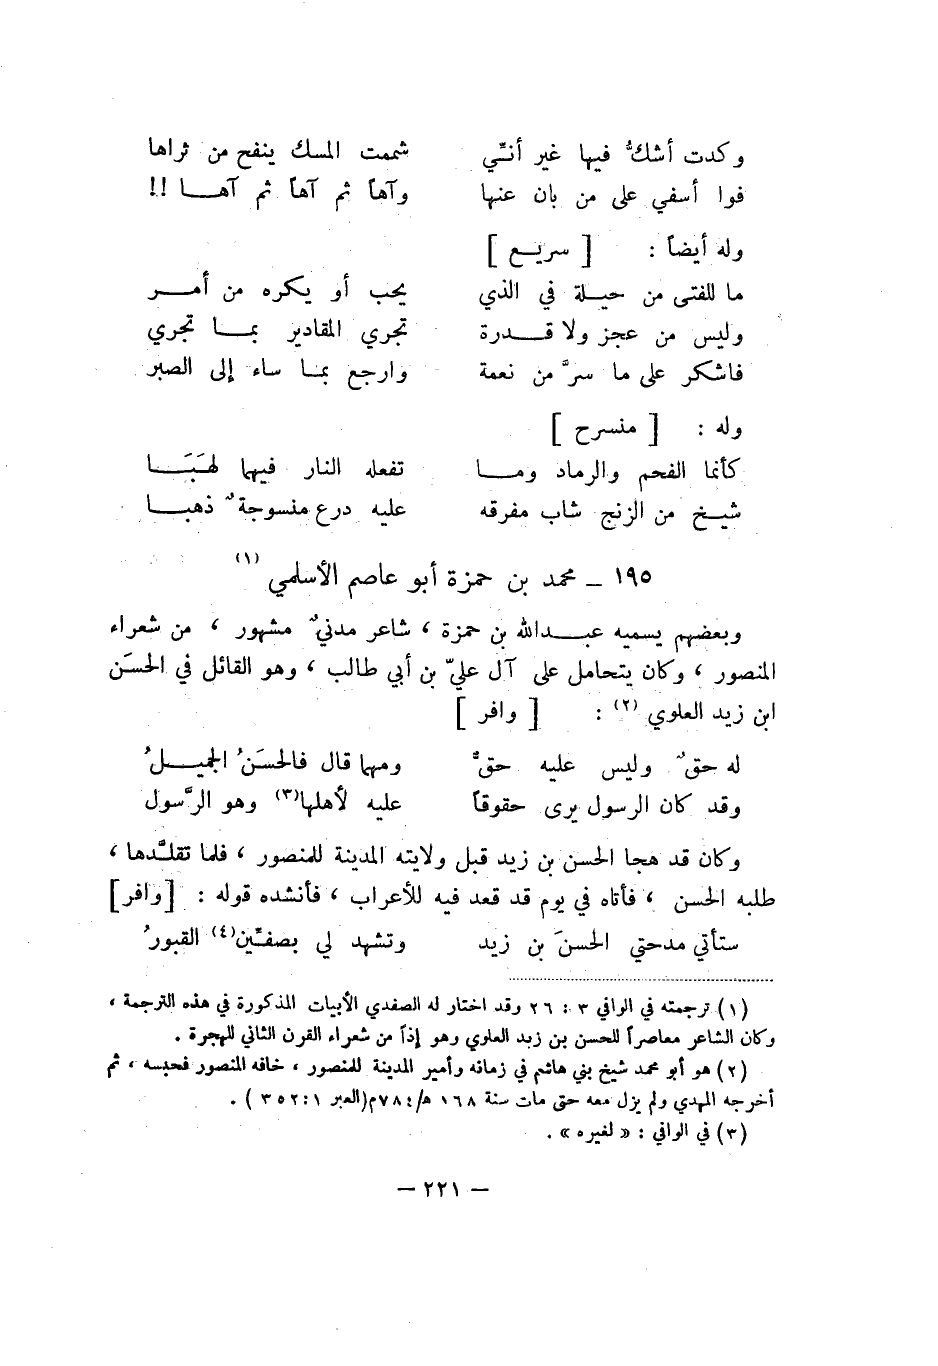 وكدت أشكُّ فيها غير أنّني شممت المسك ينفح من ثراها
فوا أسفي على من بان عنها وآهاً ثم آهاً ثم آهـا !!
وله أيضاً : [ سريع ]
ما للفتى من حيـلة في الذي يحب أو يكره من أمـر
وليس من عجز ولا قـدرة تجري المقادير بمـا تجري
فاشكر على ما سرَّ من نعمة وارجع بمـا ساء إلى الصبر
وله : [ منسرح ]
كأنما الفحم والرماد ومـا تفعله النار فيها لهَبَـا
شيـخ من الزنج شاب مفرقه عليه درع منسوجةٌ ذهبـا
١٩٥ – محمد بن حمزة أبو عاصم الأسلمي (١)
وبعضهم يسميه عبـدالله بن حمزة ، شاعر مدنيٌ مشهور ، من شعراء
المنصور ، وكان يتحامل على آل عليّ بن أبي طالب ، وهو القائل في الحسَن
ابن زيد العلوي (٢) : [ وافر ]
له حقٌ وليس عليه حقٌّ ومهما قال فالحسَنُ الجميـلُ
وقد كان الرسول يرى حقوقاً عليه لأهلها(٣) وهو الرَّسول
وكان قد هجا الحسن بن زيد قبل ولايته المدينة للمنصور ، فلما تقلـَّدها ،
طلبه الحسن ، فأتاه في يوم قد قعد فيه للأعراب ، فأنشده قوله : [وافر]
ستأتي مدحتي الحسنَ بن زيد وتشهد لي بصفـّين(٤) القبورُ
(١) ترجمته في الوافي ٣ : ٢٦ وقد اختار له الصفدي الأبيات المذكورة في هذه الترجمة ،
وكان الشاعر معاصراً للحسن بن زيد العلوي وهو إذاً من شعراء القرن الثاني للهجرة .
(٢) هو أبو محمد شيخ بني هاشم في زمانه وأمير المدينة للمنصور ، خافه المنصور فحبسه ، ثم
أخرجه المهدي ولم يزل معه حتى مات سنة ١٦٨ ه/٧٨٤م(العبر ١ : ٣٥٢ ) .
(٣) في الوافي : « لغيره » .
– ٢٢١ –